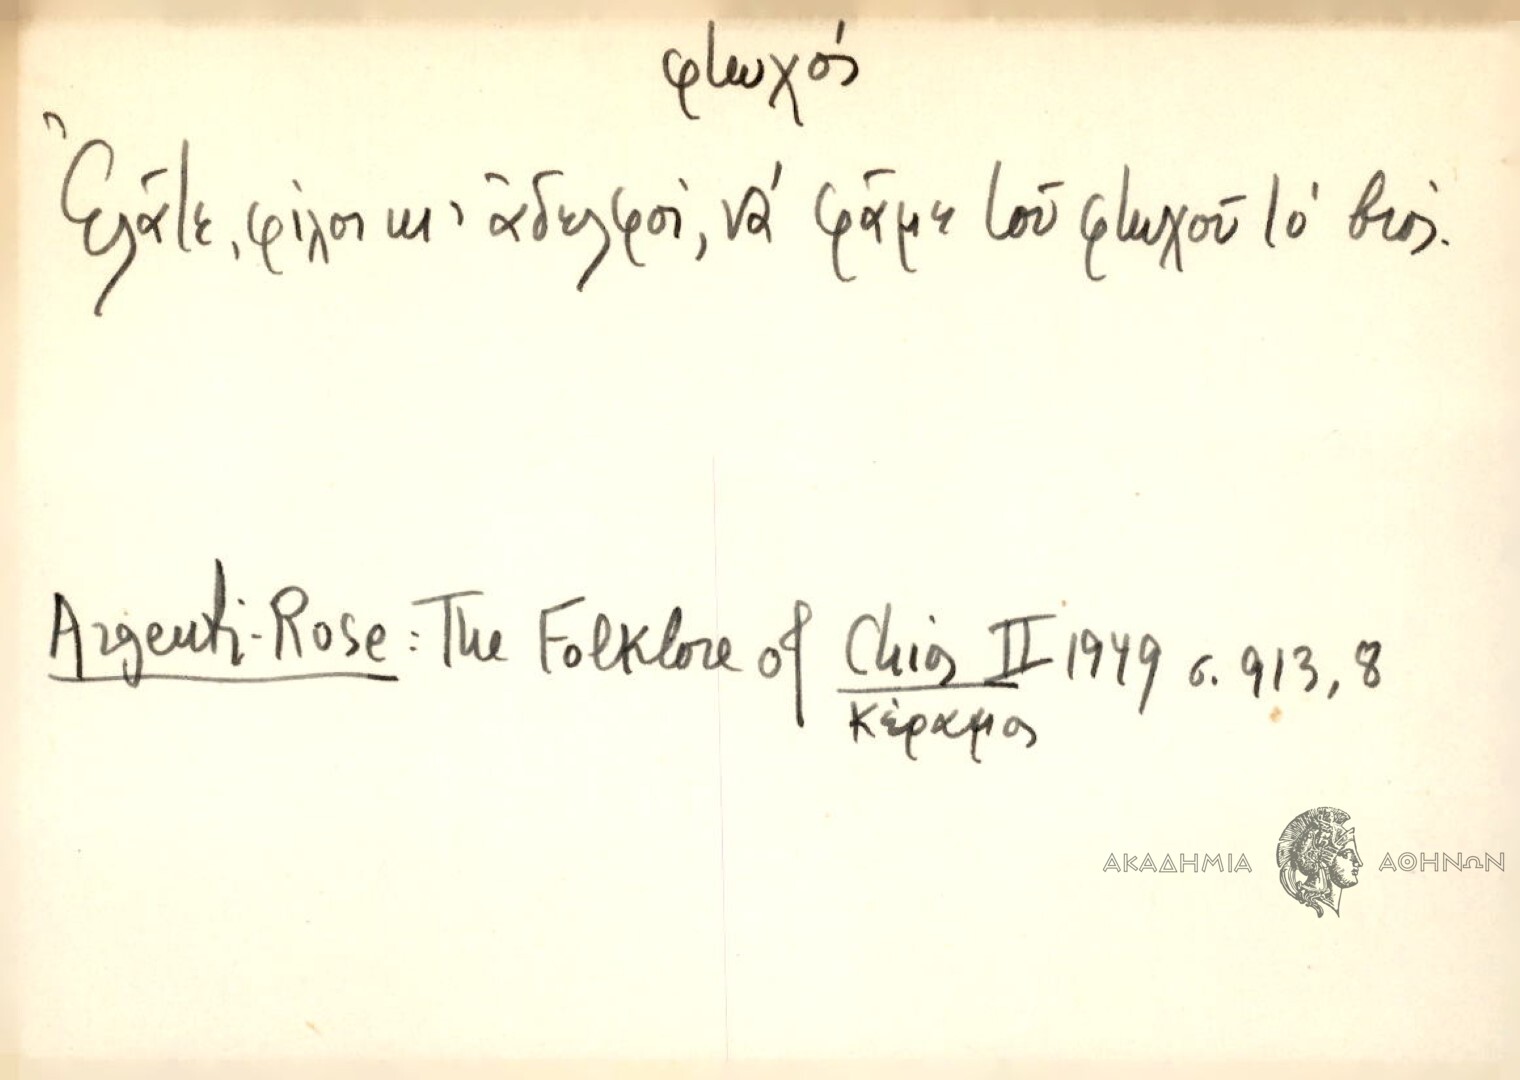 φτωχός
Ἐλᾶτε, φίλοι κι' ἀδελφοί, νά φᾶμε τοῦ φτωχοῦ τό βιός.
Argenti-Rose: The Folklore of Chios II 1949 σ. 913, 8
Κέραμος
ΑΚΑΔΗΜΙΑ ΑΘΗΝΩΝ